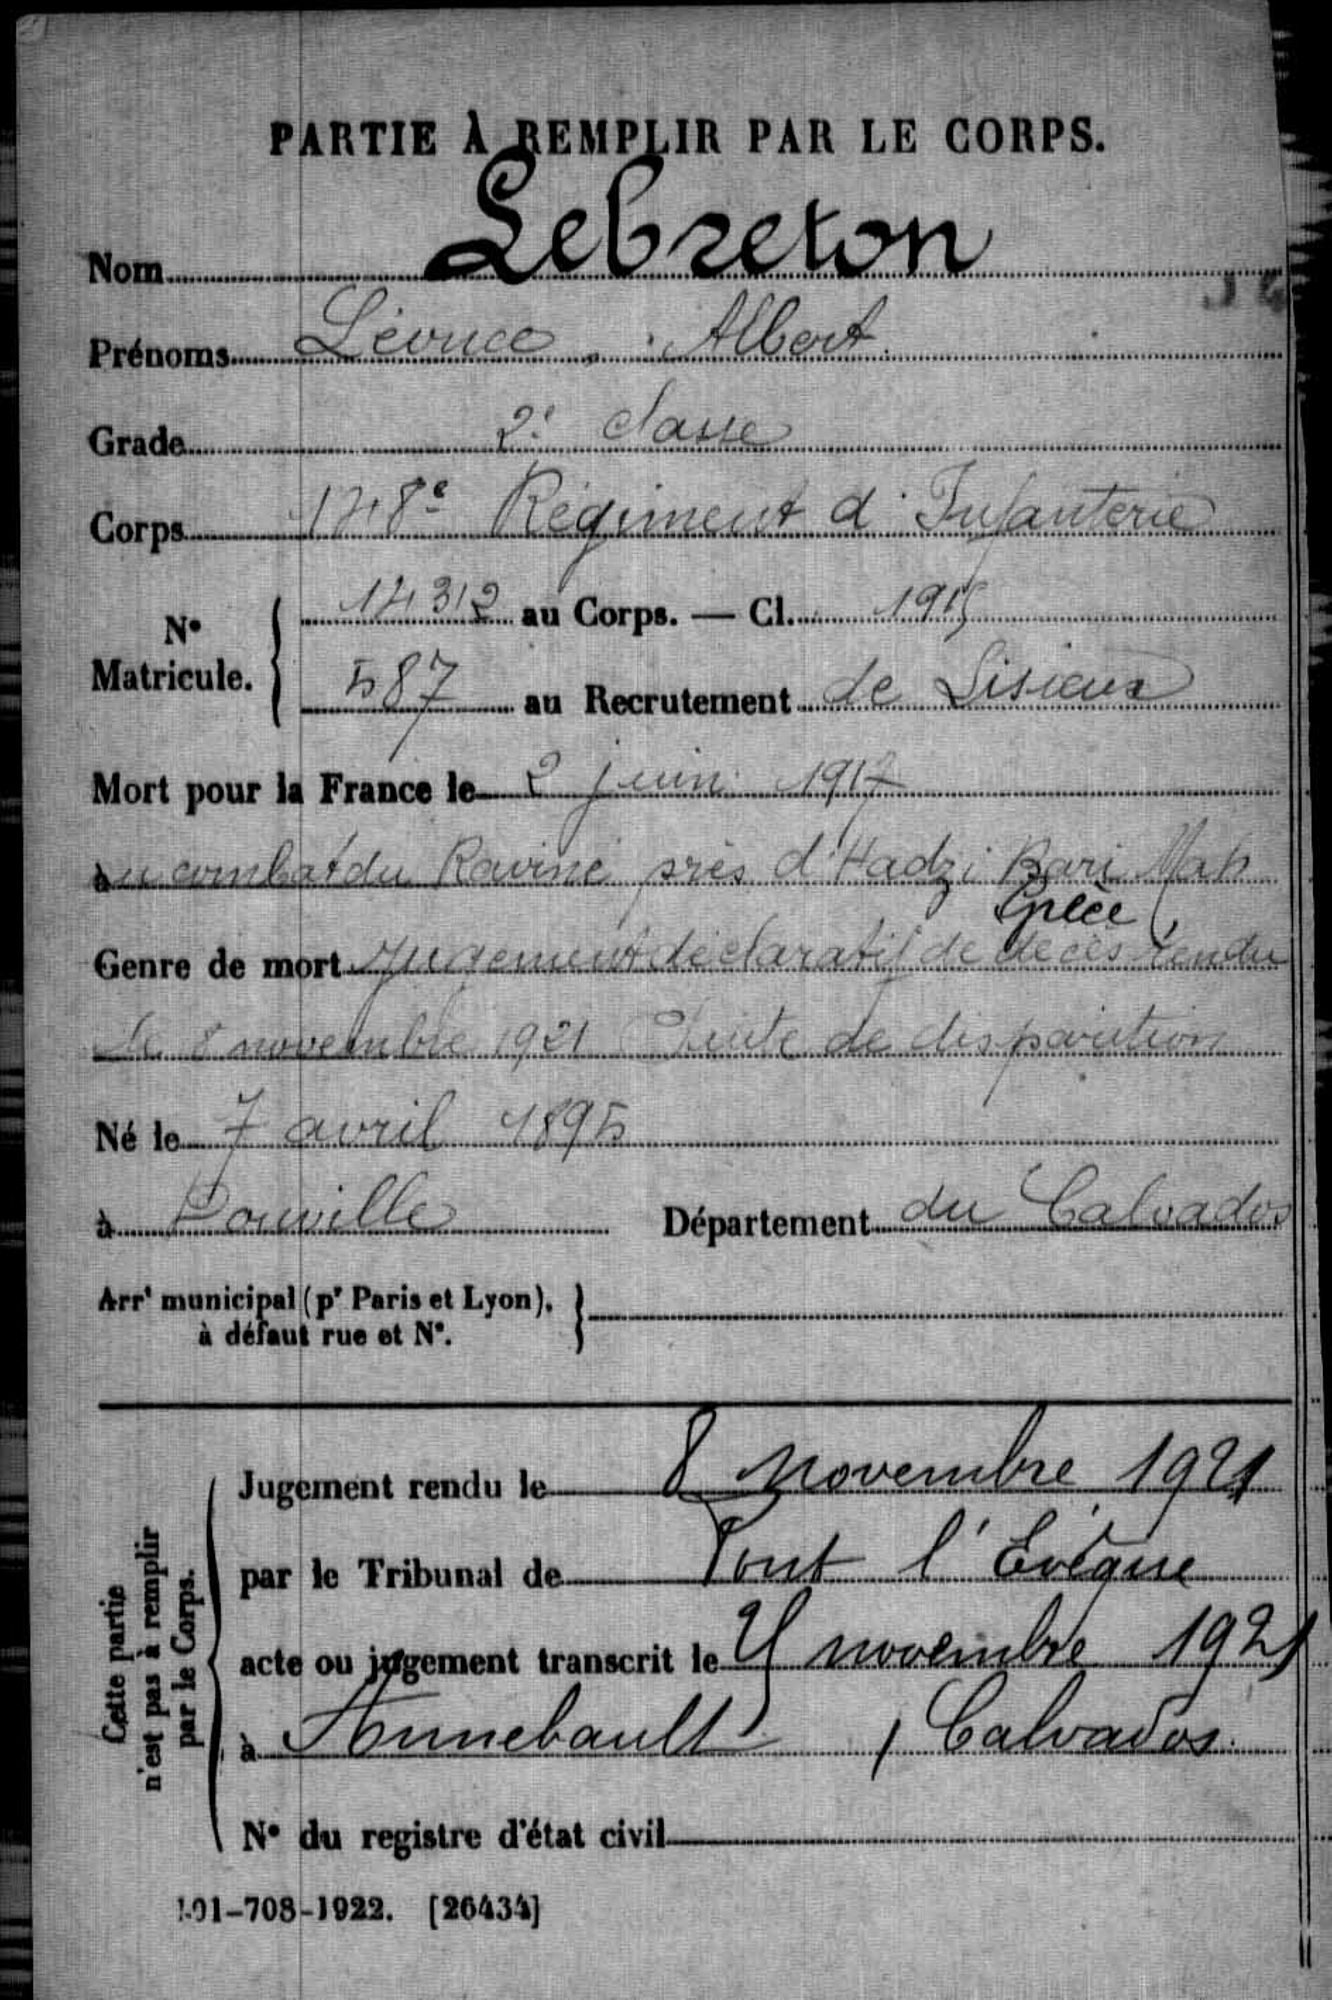 PARTIE À REMPLIR PAR LE CORPS.
Nom Lebreton
Prénoms Léonce, Albert
Grade 2e classe
Corps 148e Régiment d'Infanterie
No Matricule. 14312 au Corps. — Cl. 1915
587 au Recrutement de Lisieux
Mort pour la France le 2 juin 1917
au combat du Raviné près d'Hadzi Bari Mah
Grèce
Genre de mort Jugement déclaratif de décès rendu
le 8 novembre 1921 Suite de disparition
Né le 7 avril 1895
à Département du Calvados
Arrt municipal (pr Paris et Lyon),
à défaut rue et No.
Cette partie
n'est pas à remplir
par le Corps.
Jugement rendu le 8 Novembre 1921
par le Tribunal de Pont l'Évêque
acte ou jugement transcrit le novembre 1921
à Annebault, Calvados.
No du registre d'état civil
-708-1922. [26434]